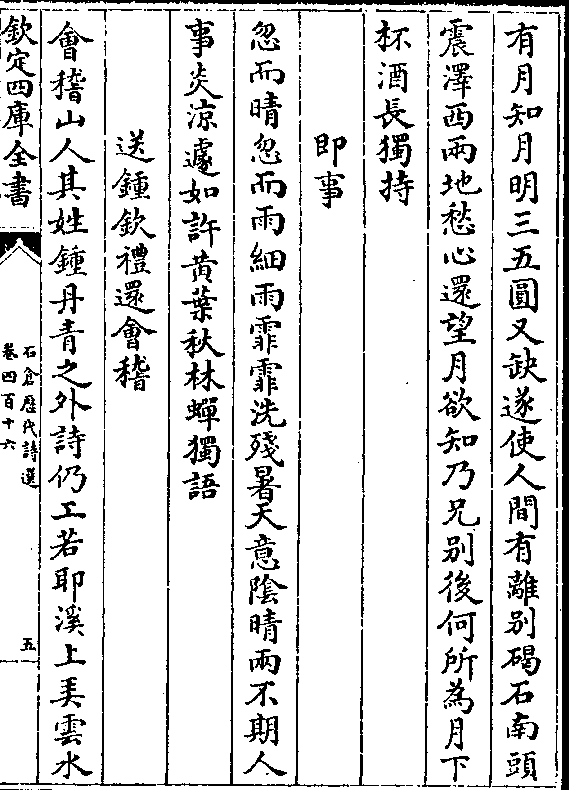 有月知月明三五圓又缺遂使人間有離別碣石南頭
震澤西兩地愁心還望月欲知乃兄別後何所為月下
杯酒長獨持
即事
忽而晴忽而雨細雨霏霏洗殘暑天意陰晴兩不期人
事炎涼遽如許黃葉秋林蟬獨語
送鍾欽禮還會稽
會稽山人其姓鍾丹青之外詩仍工若耶溪上美雲水
欽定四庫全書
石倉歷代詩選
卷四百十六
五